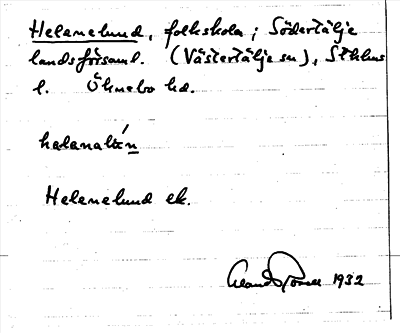 Helenelund, folkskola; Södertälje
landsförsaml. (Västertälje sn), Sthlms
l. Öknebo hd.
helenalún
Helenelund ek.
1932